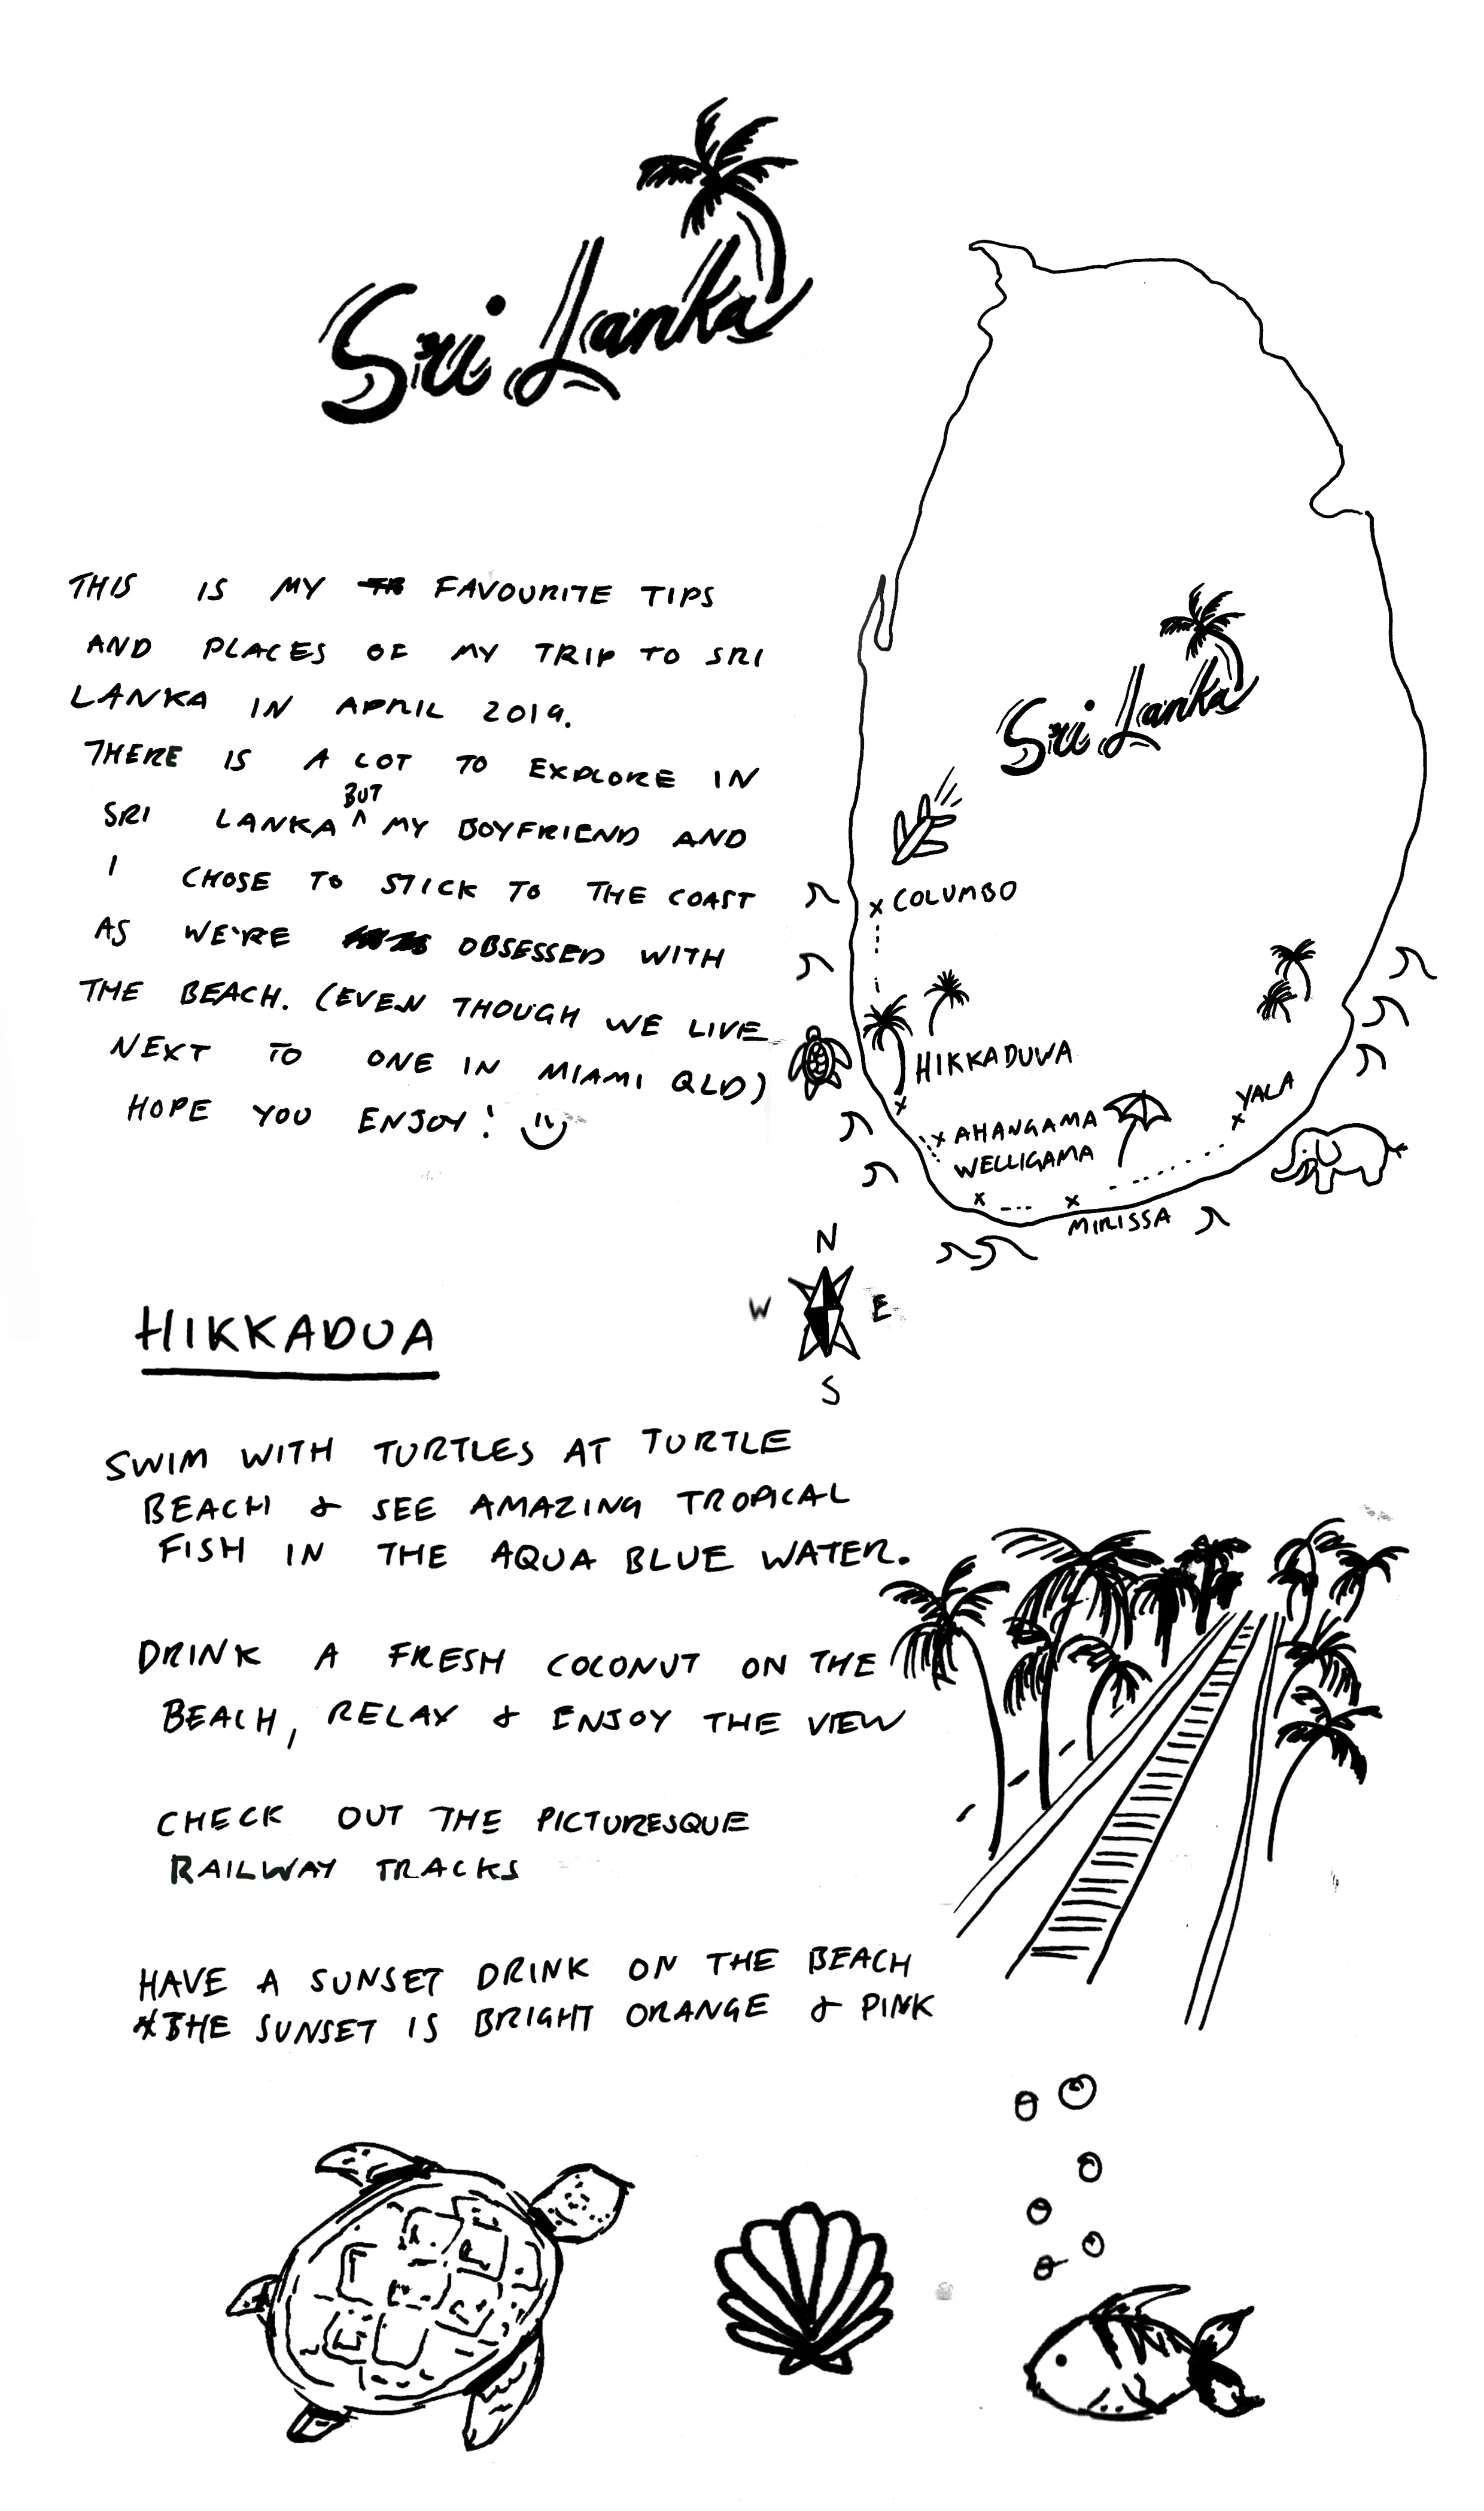 Sri Lanka
THIS IS MY FAVOURITE TIPS
AND PLACES OF MY TRIP TO SRI
LANKA IN APRIL 2019.
THERE IS A LOT TO EXPLORE IN
SRI LANKA BUT MY BOYFRIEND AND
I CHOSE TO STICK TO THE COAST
AS WE'RE OBSESSED WITH
THE BEACH. (EVEN THOUGH WE LIVE
NEXT TO ONE IN MIAMI QLD)
HOPE YOU ENJOY!
Sri Lanka
x COLUMBO
HIKKADUWA
x
YALA
x
x AHANGAMA
WELLIGAMA
x
x
MIRISSA
N
W E
S
HIKKADUA
SWIM WITH TURTLES AT TURTLE
BEACH & SEE AMAZING TROPICAL
FISH IN THE AQUA BLUE WATER.
DRINK A FRESH COCONUT ON THE
BEACH, RELAX & ENJOY THE VIEW
CHECK OUT THE PICTURESQUE
RAILWAY TRACKS
HAVE A SUNSET DRINK ON THE BEACH
*THE SUNSET IS BRIGHT ORANGE & PINK